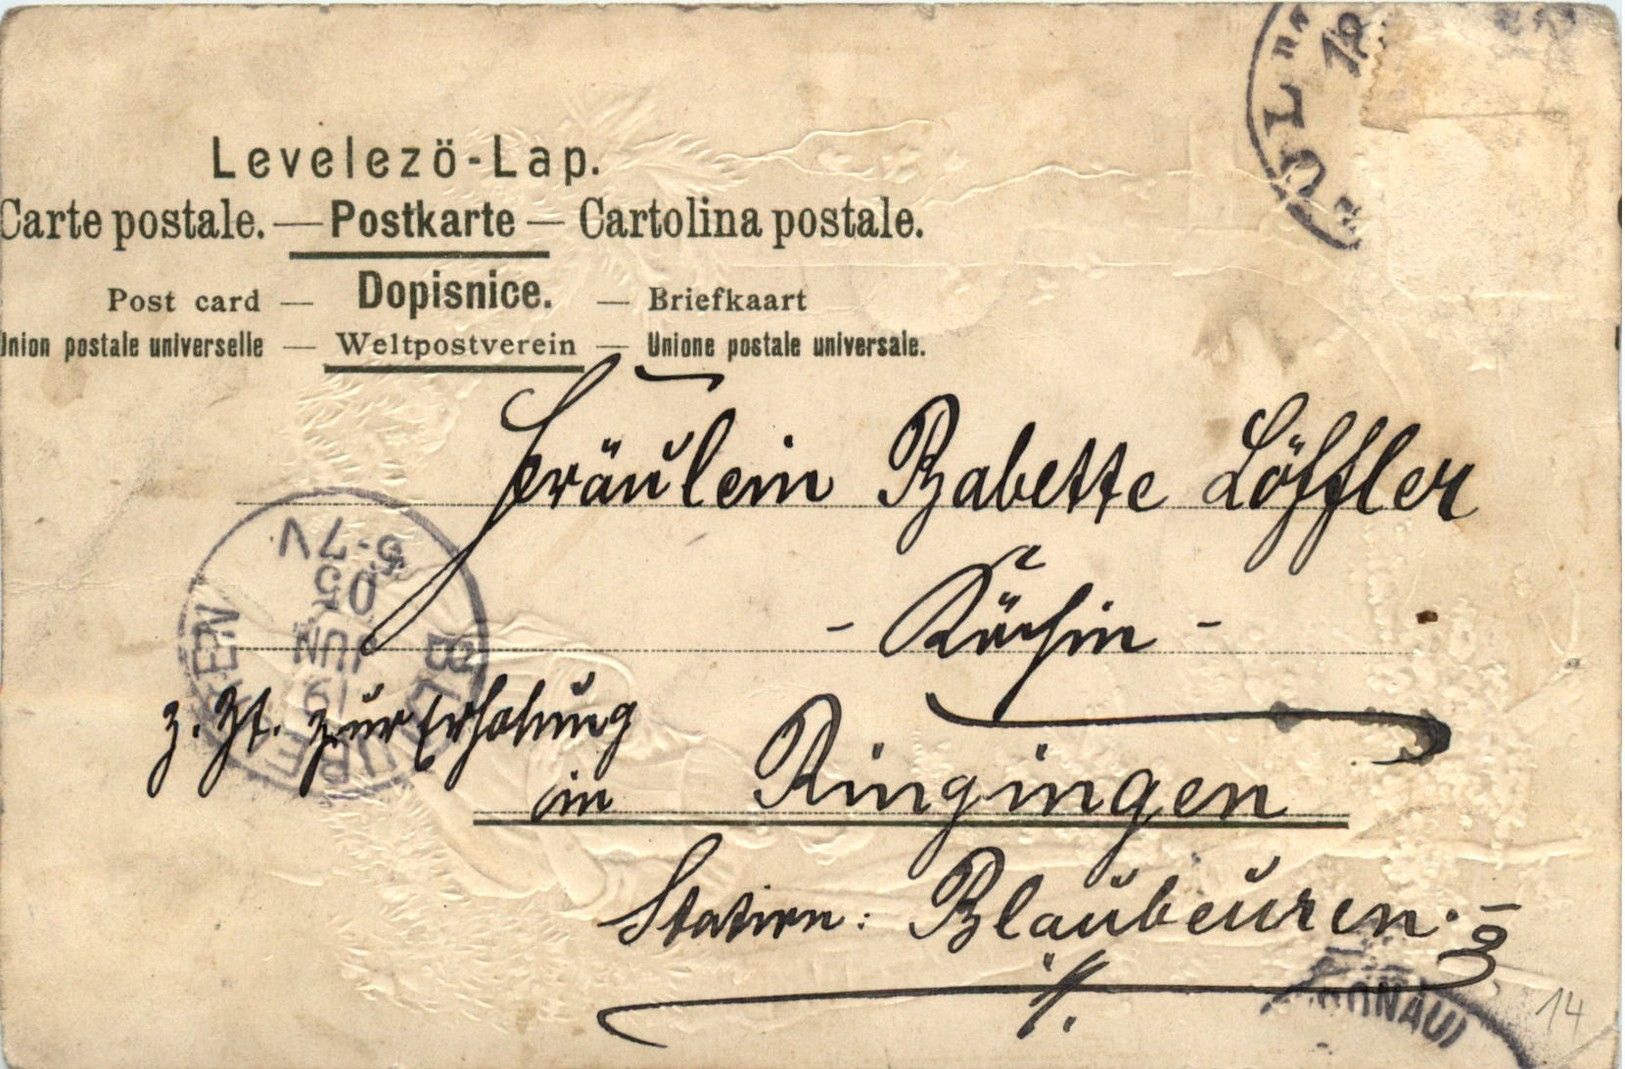 Levelezö-Lap.
Carte postale. — Postkarte — Cartolina postale.
Post card — Dopisnice. — Briefkaart
Union postale universelle — Weltpostverein — Unione postale universale.
ULM
12
Fräulein Babette Löffler
- Köchin -
z. Zt. zur Erholung
in Ringingen
Station: Blaubeuren.
BLAUBEUREN
19
JUN
05
5-7V
(DONAU)
14